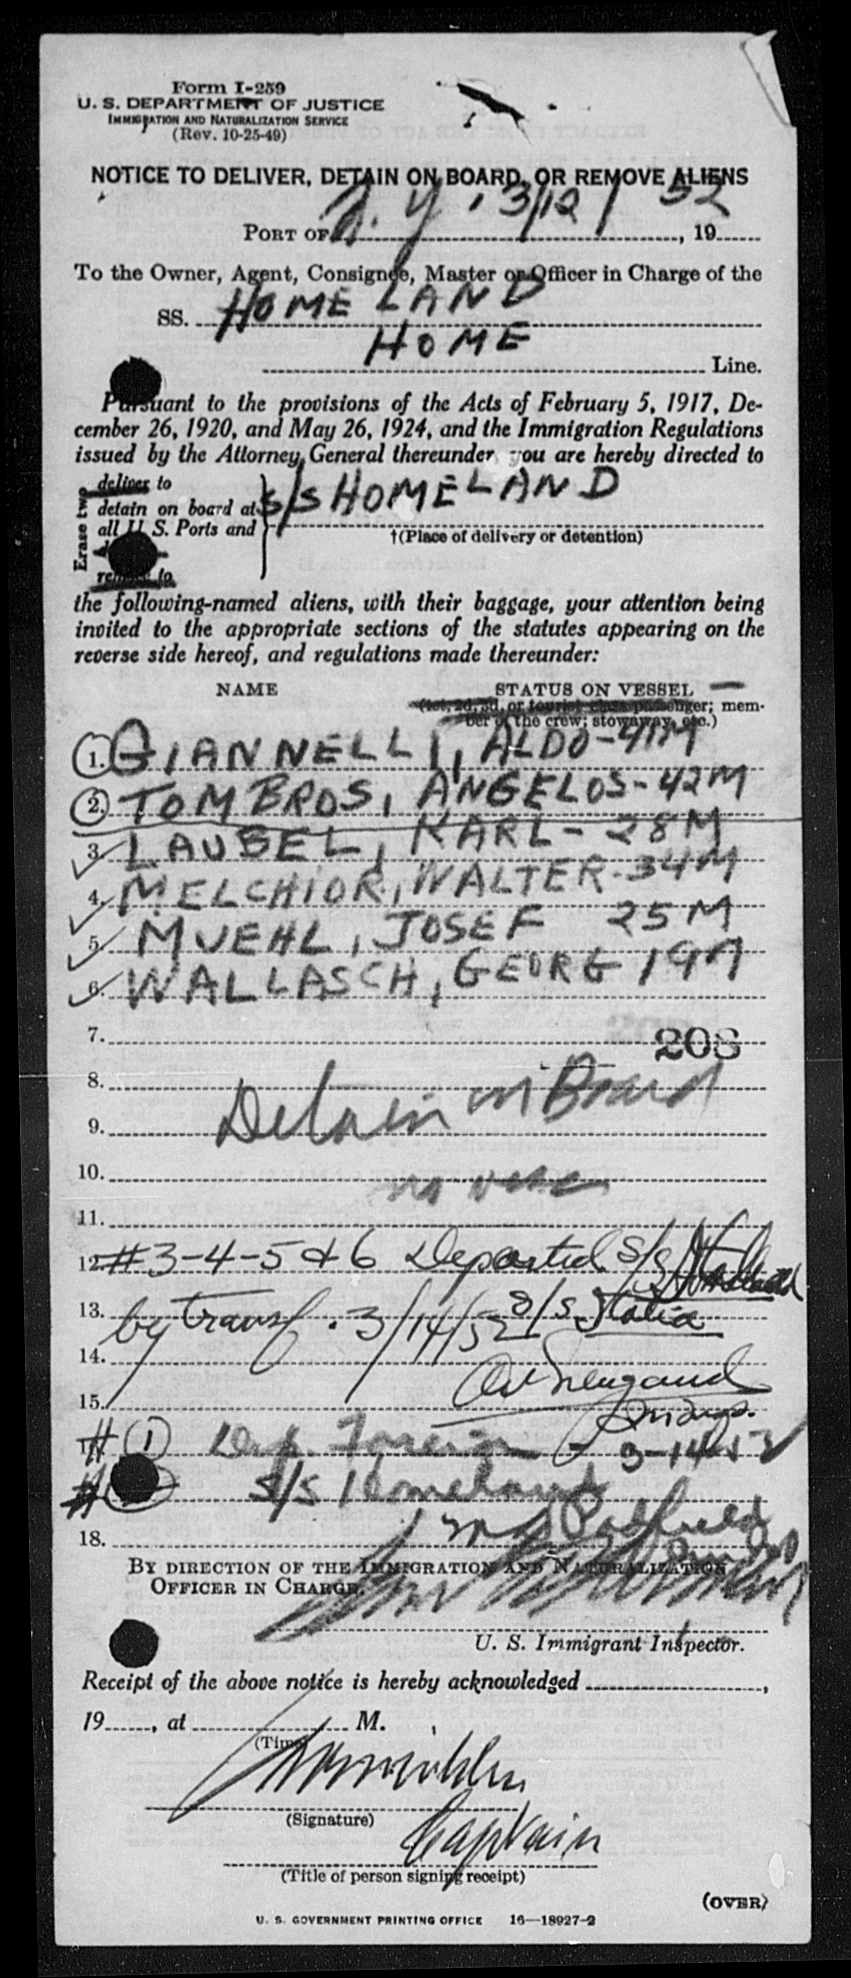 Form I-259
U. S. DEPARTMENT OF JUSTICE
IMMIGRATION AND NATURALIZATION SERVICE
(Rev. 10-25-49)
NOTICE TO DELIVER, DETAIN ON BOARD, OR REMOVE ALIENS
PORT OF N. Y. 3/12/52, 19
To the Owner, Agent, Consignee, Master or Officer in Charge of the
SS. HOMELAND
HOME Line.
Pursuant to the provisions of the Acts of February 5, 1917, De-
cember 26, 1920, and May 26, 1924, and the Immigration Regulations
issued by the Attorney General thereunder you are hereby directed to
Erase two
deliver to
detain on board at
all U. S. Ports and
remove to
S/S HOMELAND
†(Place of delivery or detention)
the following-named aliens, with their baggage, your attention being
invited to the appropriate sections of the statutes appearing on the
reverse side hereof, and regulations made thereunder:
NAME STATUS ON VESSEL
(1st, 2d, 3d, or tourist class passenger; mem-
ber of the crew; stowaway, etc.)
1. GIANNELLI, ALDO-41M
2. TOMBROS, ANGELOS-42M
3. LAUBEL, KARL-28M
4. MELCHIOR, WALTER-34M
5. MUEHL, JOSEF 25M
6. WALLASCH, GEORG 19M
7. 208
8.
Detain on Board
9.
10.
no visa
11.
12. #3-4-5 & 6 Departed S/S
13. by transf. 3/14/52 S/S Italia
14.
15.
# (1) Dep. Foreign - 3-14-52
# S/S Homeland
18.
BY DIRECTION OF THE IMMIGRATION AND NATURALIZATION
OFFICER IN CHARGE,
U. S. Immigrant Inspector.
Receipt of the above notice is hereby acknowledged ,
19 , at M.
(Time)
(Signature)
Captain
(Title of person signing receipt)
(OVER)
U. S. GOVERNMENT PRINTING OFFICE 16—18927-2